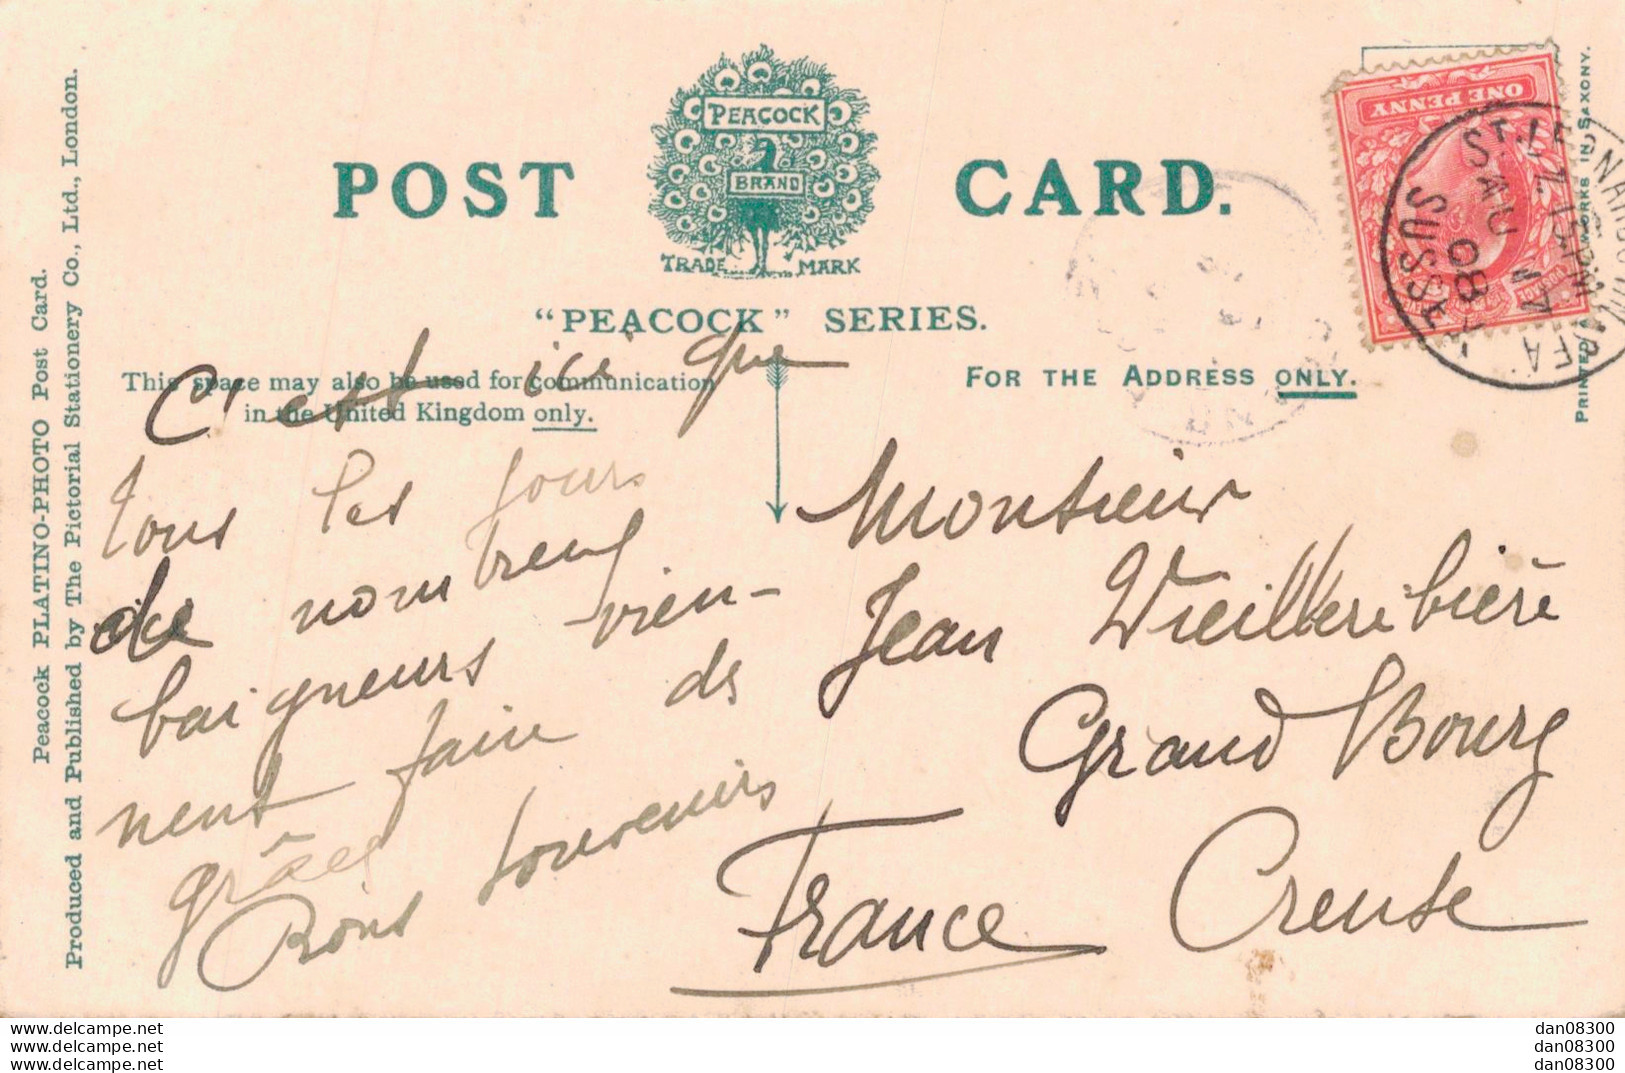 POST CARD.
PEACOCK
BRAND
TRADE MARK
"PEACOCK" SERIES.
This space may also be used for communication
in the United Kingdom only.
FOR THE ADDRESS ONLY.
Peacock PLATINO-PHOTO Post Card.
Produced and Published by The Pictorial Stationery Co., Ltd., London.
ONE PENNY
SUSSEX
AU 4
08
C'est ici que
tous les jours
de nombreux
baigneurs vien-
nent faire ds
grâces
Bons souvenirs
Monsieur
Jean Vieilleribière
Grand Bourg
Creuse
France
www.delcampe.net
www.delcampe.net
www.delcampe.net
dan08300
dan08300
dan08300